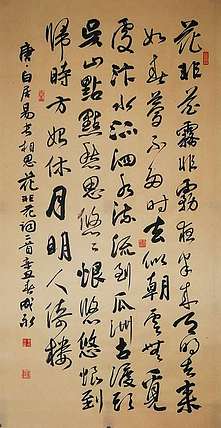 花非花霧非霧夜半来天明去来
如春夢不多時去似朝雲無覓
處汴水流泗水流流到瓜洲古渡頭
吳山點點愁思悠悠恨悠悠恨到
歸時方始休月明人倚樓
唐白居易长相思花非花词二首